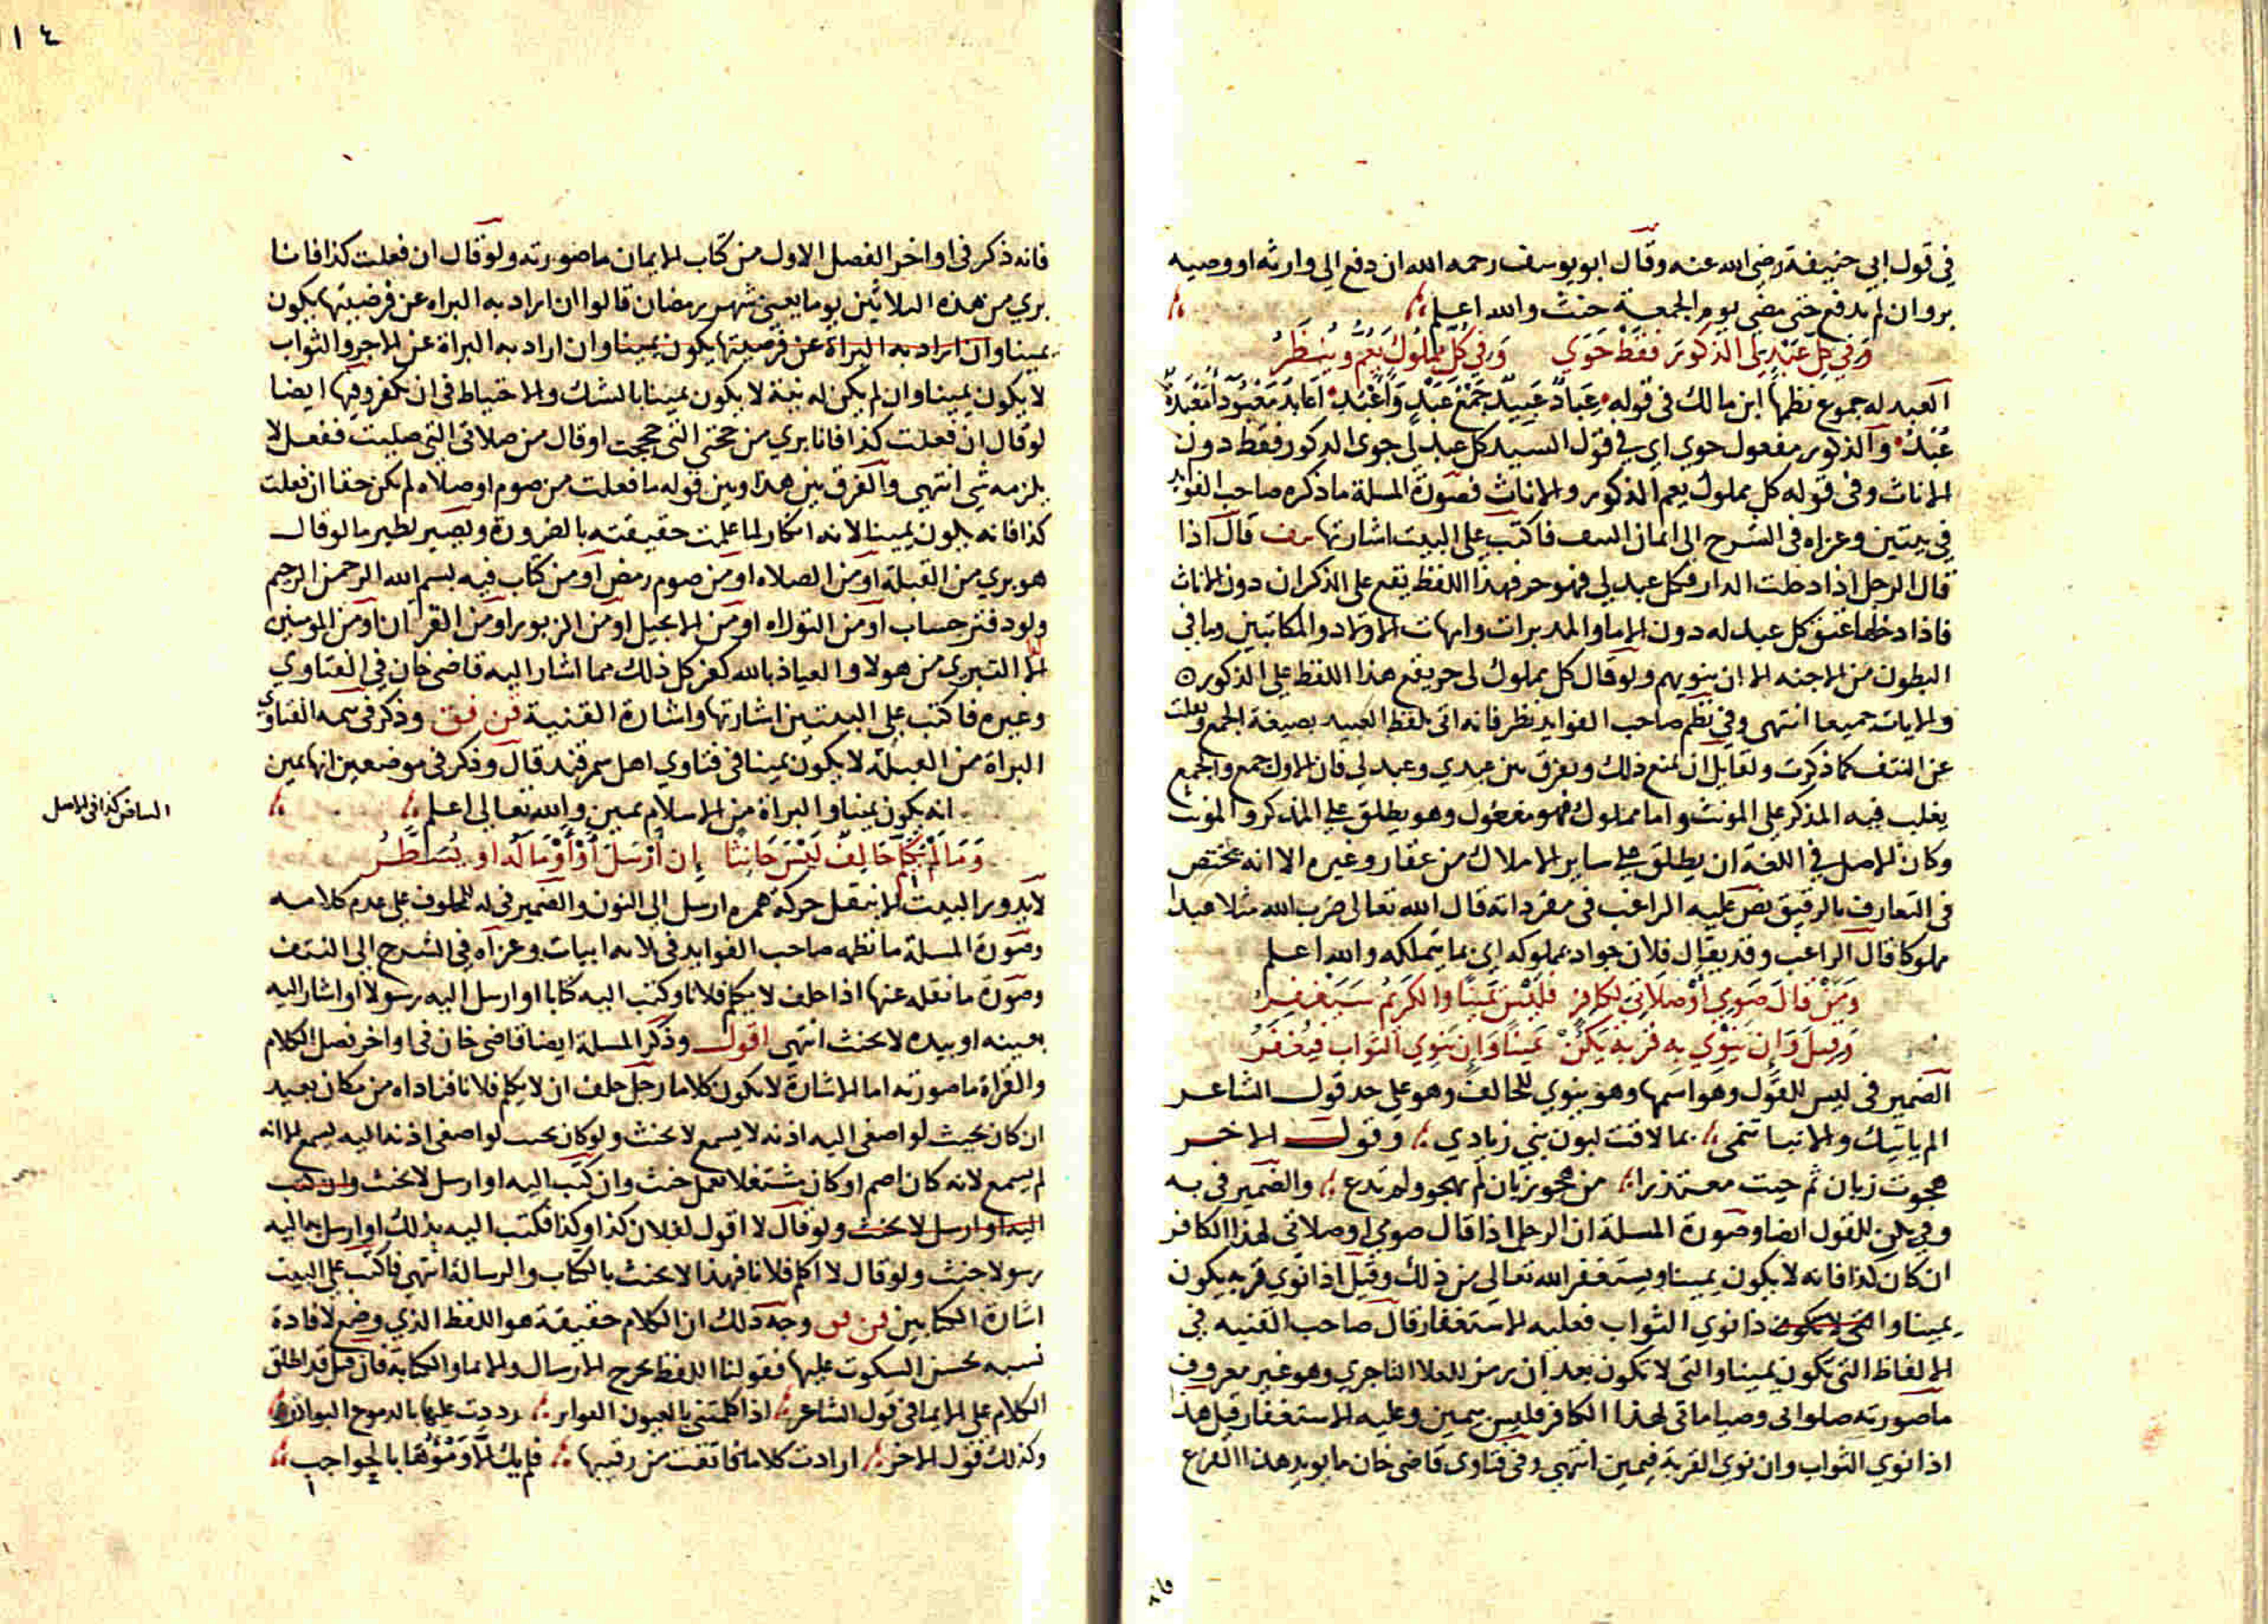 في قول ابي حنيفة رضي الله عنه وقال ابو يوسف رحمه الله ان دفع الي وارثه او وصيه
بر وان لم يدفع حتى مضى يوم الجمعة حنث والله اعلم
وفي كل عبد لي الذكور فقط حوي وفي كل مملوك يعم وينظر
العبد له جموع نظمها ابن مالك في قوله عباد عبيد جمع عبد واعبد اعابد معبوداء معبدة
عبد والذكور مفعول حوي اي في قول السيد كل عبد لي حوى الذكور فقط دون
الاناث وفي قوله كل مملوك يعم الذكور والاناث فصورة المسلة ما ذكره صاحب الفوايد
في بيتين وعزاه في الشرح الى ايمان النتف فاكتب على البيت اشارتها قال اذا
قال الرجل اذا دخلت الدار فكل عبد لي فهو حر فهذا اللفظ يقع على الذكران دون الاناث
فاذا دخلها عتق كل عبد له دون الاما والمدبرات وامهات الاولاد والمكاتبين وما في
البطون من الاجنه الا ان ينويهم ولو قال كل مملوك لى حر يقع هذا اللفظ على الذكور
والاناث جميعا انتهى وفي نظم صاحب الفوايد نظر فانه اتى بلفظ العبيد بصيغة الجمع ونقلت
عن النتف كما ذكرت ولقايل ان يمنع ذلك ويفرق بين عبيدي وعبد لي فان الاول جمع والجمع
يغلب فيه المذكر على المونث واما مملوك فهو مفعول وهو يطلق على المذكر والمونث
وكان الاصل في اللغة ان يطلق على ساير الاملاك من عقار وغيره الا انه مختص
في التعارف بالرقيق نص عليه الراغب في مفرداته قال الله تعالى ضرب الله مثلا عبدا
مملوكا قال الراغب وقد يقال فلان جواد بمملوكه اي بما يتملكه والله اعلم
ومن قال صومي او صلاتي لكافر فليس يمينا والكريم سيغفر
وقيل وان ينوي به قربة يكن يمينا وان ينوي الثواب فيغفر
الضمير في ليس للقول وهو اسمها وهو ينوي للحالف وهو على حد قول الشاعر
الم ياتيك والانباء تنمى بما لاقت لبون بني زيادي وقول الاخر
هجوت زبان ثم جيت معتذرا من هجو زبان لم تهجو ولم تدع والضمير في به
وفي يكن للقول ايضا وصورة المسلة ان الرجل اذا قال صومي او صلاتي لهذا الكافر
ان كان كذا فانه لا يكون يمينا ويستغفر الله تعالى من ذلك وقيل اذا نوي قربه يكون
يمينا واذا نوي الثواب فعليه الاستغفار قال صاحب القنيه في
الالفاظ التي تكون يمينا والتي لا تكون بعد ان رمز للعلا التاجري وهو غير معروف
ما صورته صلواتى وصياماتى لهذا الكافر فليس بيمين وعليه الاستغفار قيل هذا
اذا نوي الثواب وان نوي القربة فيمين انتهي وفي فتاوى قاضي خان ما يويد هذا الفرع
فانه
١٤
فانه ذكر في اواخر الفصل الاول من كتاب الايمان ما صورته ولو قال ان فعلت كذا فانا
بري من هذه الثلاثين يوما يعني شهر رمضان قالوا ان اراد به البراه عن فرضيتها يكون
يمينا وان اراد به البراة عن فرضيتها يكون يمينا وان اراد به البراة عن الاجر والثواب
لا يكون يمينا وان لم يكن له نية لا يكون يمينا بالشك والاحتياط في ان يكفر وفيها ايضا
لو قال ان فعلت كذا فانا بري من حجتي التي حججت او قال من صلاتي التي صليت ففعل لا
يلزمه شي انتهي والفرق بين هذا وبين قوله ما فعلت من صوم او صلاه لم يكن حقا ان فعلت
كذا فانه يكون يمينا لانه انكار لما علمت حقيقته بالضرورة ويصير نظير ما لو قال
هو بري من القبلة او من الصلاه او من صوم رمض او من كتاب فيه بسم الله الرحمن الرحيم
ولو دفتر حساب او من التوراه او من الانجيل او من الزبور او من القران او من المومنين
التبري من هولا والعياذ بالله كفر كل ذلك مما اشار اليه قاضي خان في الفتاوي
وغيره فاكتب على البيتين اشارتها واشارة القنية فن فق وذكر في تتمه الفتاوي
البراة من القبلة لا يكون يمينا في فتاوي اهل سمرقند قال وذكر في موضعين انها يمين
انه يكون يمينا والبراة من الاسلام يمين والله تعالى اعلم
كذا في الاصل
وما لم يكلم حالف ليس حانثا ان ارسل او اوما له او يسطر
لا يدور البيت الا بنقل حركة همزه ارسل الي النون والضمير في له للمحلوف على عدم كلامه
وصورة المسلة ما نظمه صاحب الفوايد في ثلاثه ابيات وعزاه في الشرح الى النتف
وصورة ما نقله عنها اذا حلف لا يكلم فلانا وكتب اليه كتابا او ارسل اليه رسولا او اشار اليه
بعينه او بيده لا يحنث انتهى اقول وذكر المسلة ايضا قاضي خان في اواخر فصل الكلام
والقراة ما صورته اما الاشارة لا يكون كلاما رجل حلف ان لا يكلم فلانا فناداه من مكان بعيد
ان كان بحيث لو اصغى اليه اذنه لا يسمع لا يحنث ولو كان بحيث لو اصغى اذنه اليه يسمع الا انه
لم يسمع لانه كان اصم او كان مشتغلا بعمل حنث وان كتب اليه او ارسل لا يحنث وان كتب
اليه او ارسل لا يحنث ولو قال لا اقول لفلان كذا وكذا فكتب اليه بذلك او ارسل بها اليه
رسولا حنث ولو قال لا اكلم فلانا فهذا لا يحنث بالكتاب والرسالة انتهى فاكتب على البيت
اشارة الكتابين فن وجه ذلك ان الكلام حقيقة هو اللفظ الذي وضع لافادة
نسبه يحسن السكوت عليها فقولنا اللفظ يخرج الارسال والايما والكتابة فان قيل قد اطلق
الكلام على الايما في قول الشاعر اذا كلمتني بالعيون الفواتر رددت عليها بالدموع البوادر
وكذلك قول الاخر ارادت كلاما فاتقت من رقيبها فلم يك الا ومؤها بالحواجب